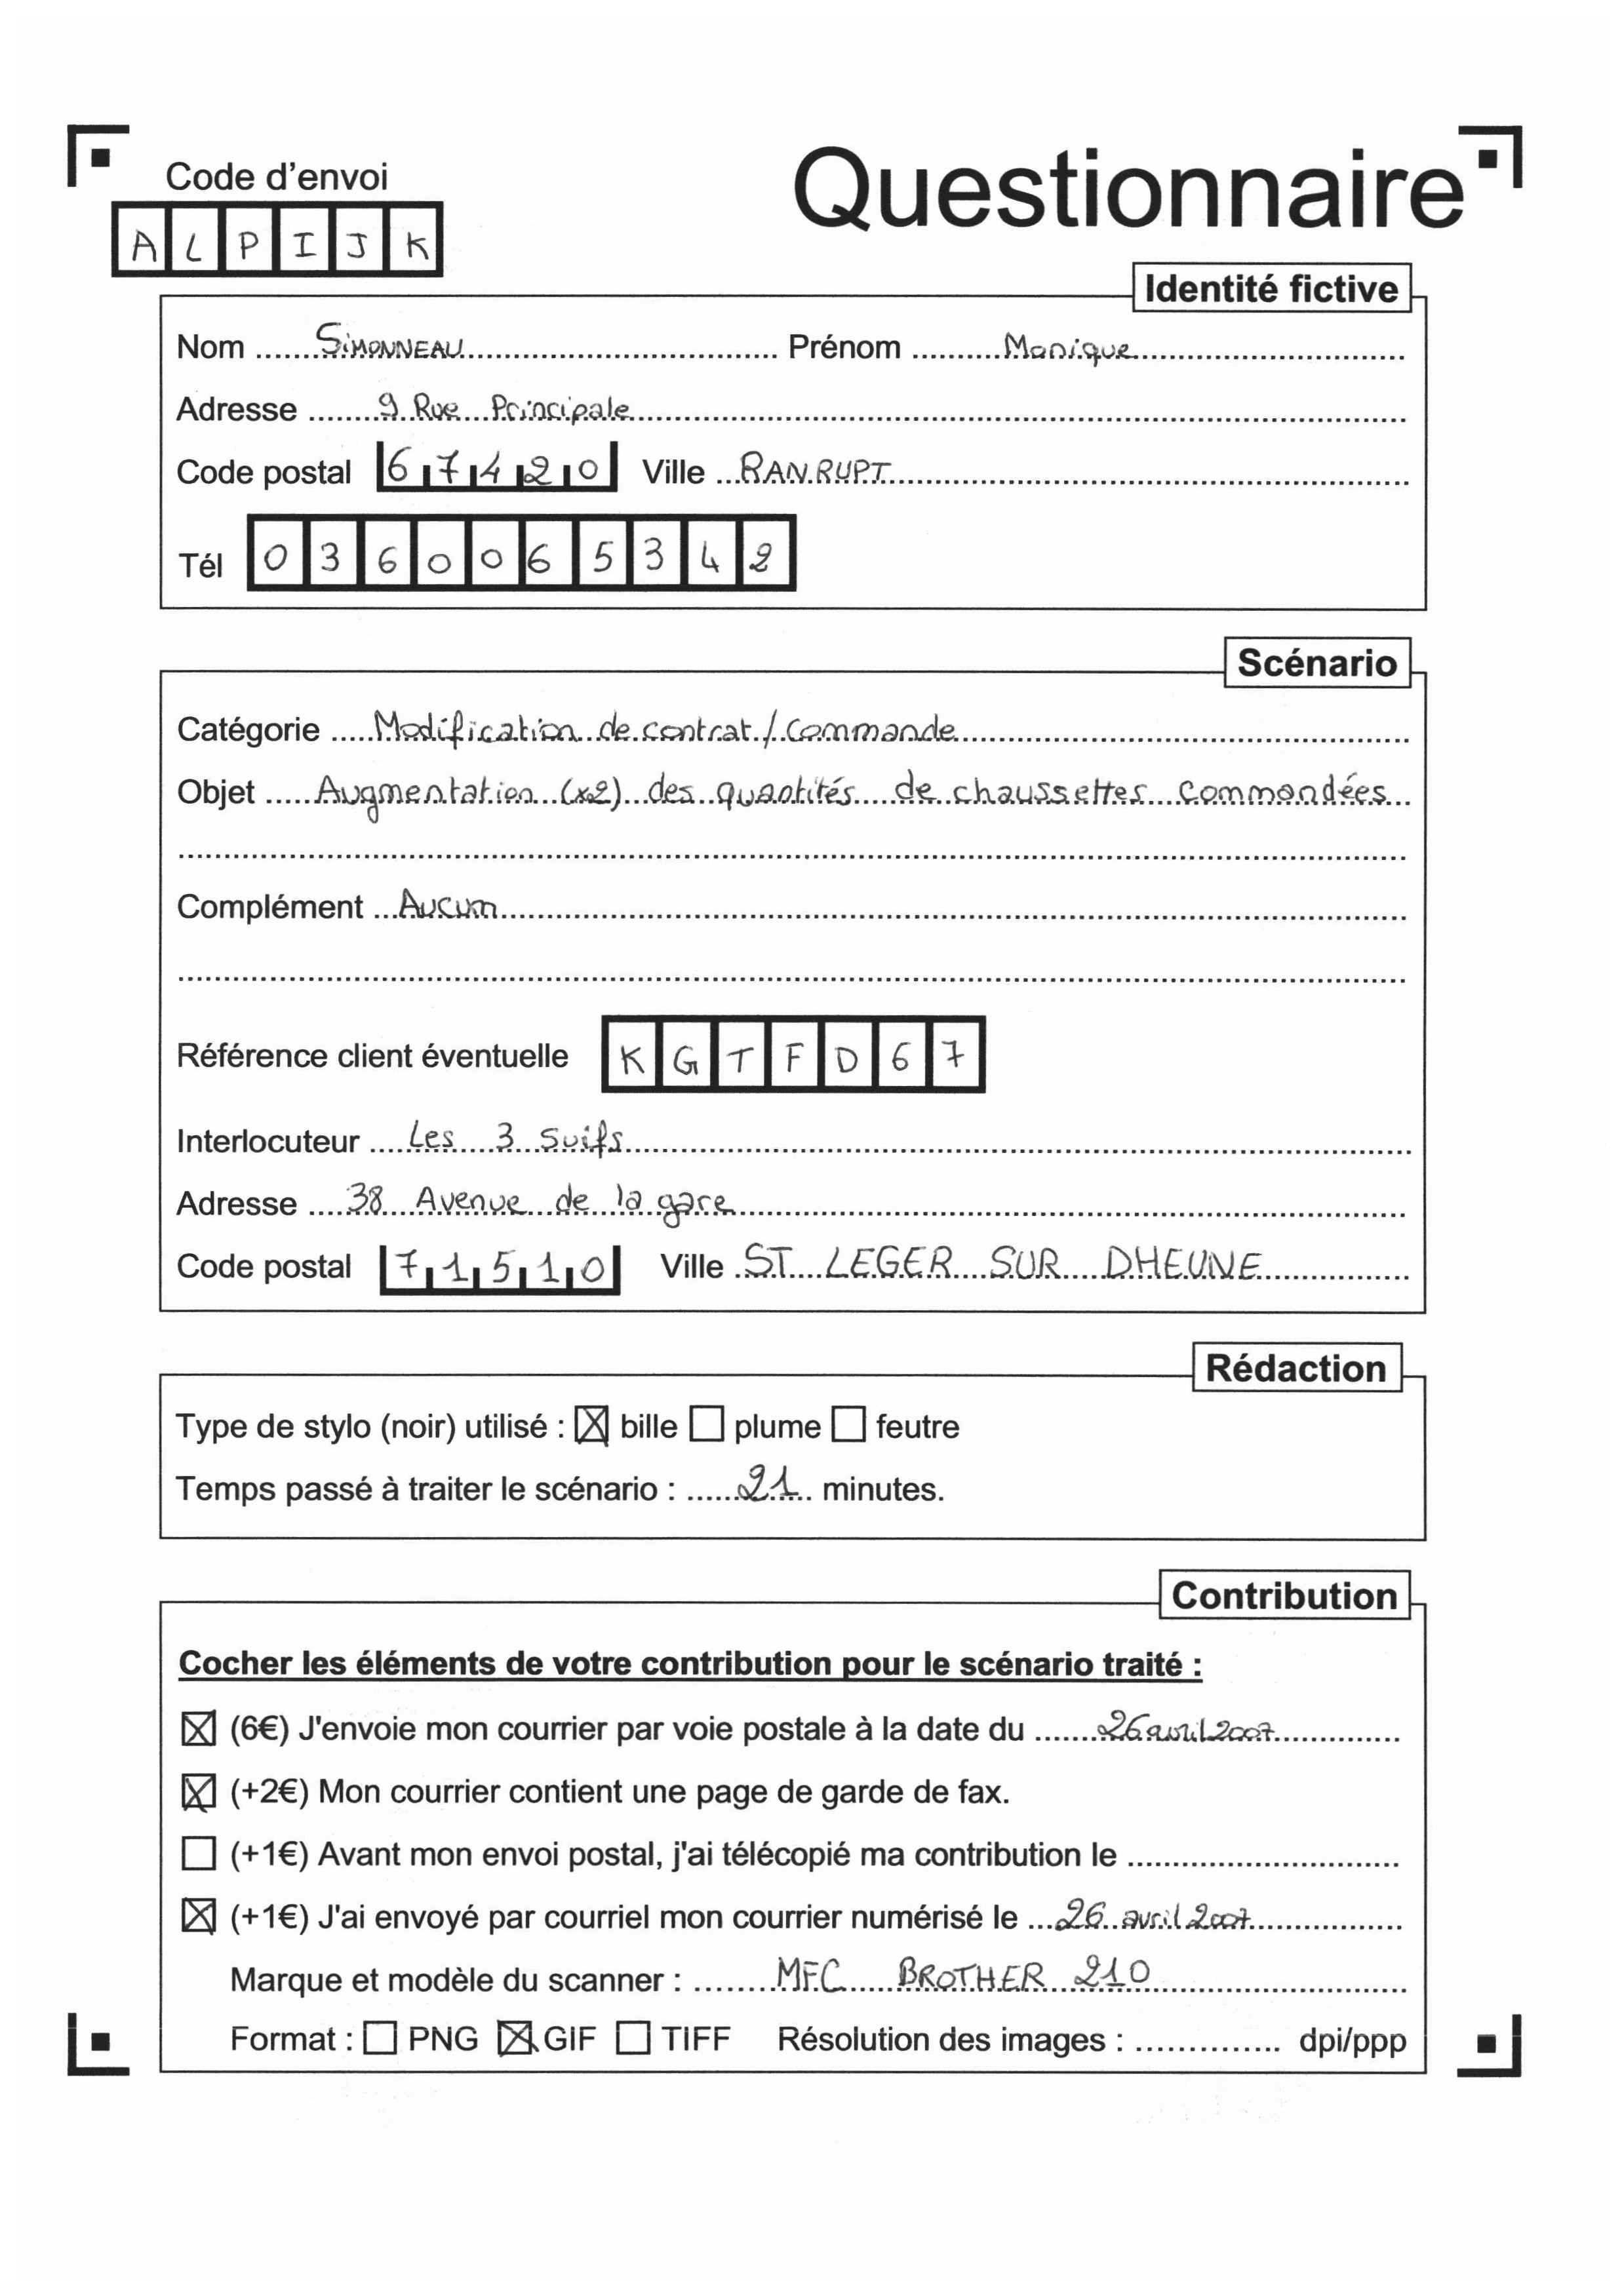 Code d'envoi
Questionnaire
A L P I J K
Identité fictive
Nom SIMONNEAU Prénom Monique
Adresse 9 Rue Principale
Code postal 67420 Ville RANRUPT
Tél 0360065342
Scénario
Catégorie Modification de contrat / commande
Objet Augmentation (x2) des quantités de chaussettes commandées
Complément Aucun
Référence client éventuelle KGTFD67
Interlocuteur Les 3 Suifs
Adresse 38 Avenue de la gare
Code postal 71510 Ville ST LEGER SUR DHEUNE
Rédaction
Type de stylo (noir) utilisé : ☒ bille ☐ plume ☐ feutre
Temps passé à traiter le scénario : 21 minutes.
Contribution
Cocher les éléments de votre contribution pour le scénario traité :
☒ (6€) J'envoie mon courrier par voie postale à la date du 26 avril 2007
☒ (+2€) Mon courrier contient une page de garde de fax.
☐ (+1€) Avant mon envoi postal, j'ai télécopié ma contribution le
☒ (+1€) J'ai envoyé par courriel mon courrier numérisé le 26 avril 2007
Marque et modèle du scanner : MFC BROTHER 210
Format : ☐ PNG ☒ GIF ☐ TIFF Résolution des images : dpi/ppp